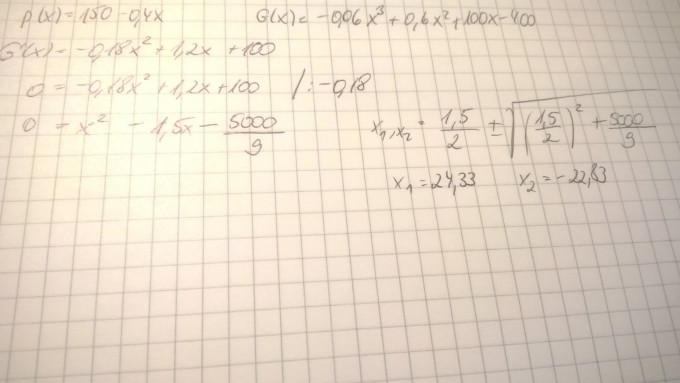 p(x) = 150 - 0,4x G(x) = -0,06x³ + 0,6x² + 100x - 400
G'(x) = -0,18x² + 1,2x + 100
0 = -0,18x² + 1,2x + 100 / : -0,18
0 = x² - 1,5x - 5000/9
x₁,x₂ = 1,5/2 ± √((1,5/2)² + 5000/9)
x₁ = 24,33 x₂ = -22,83